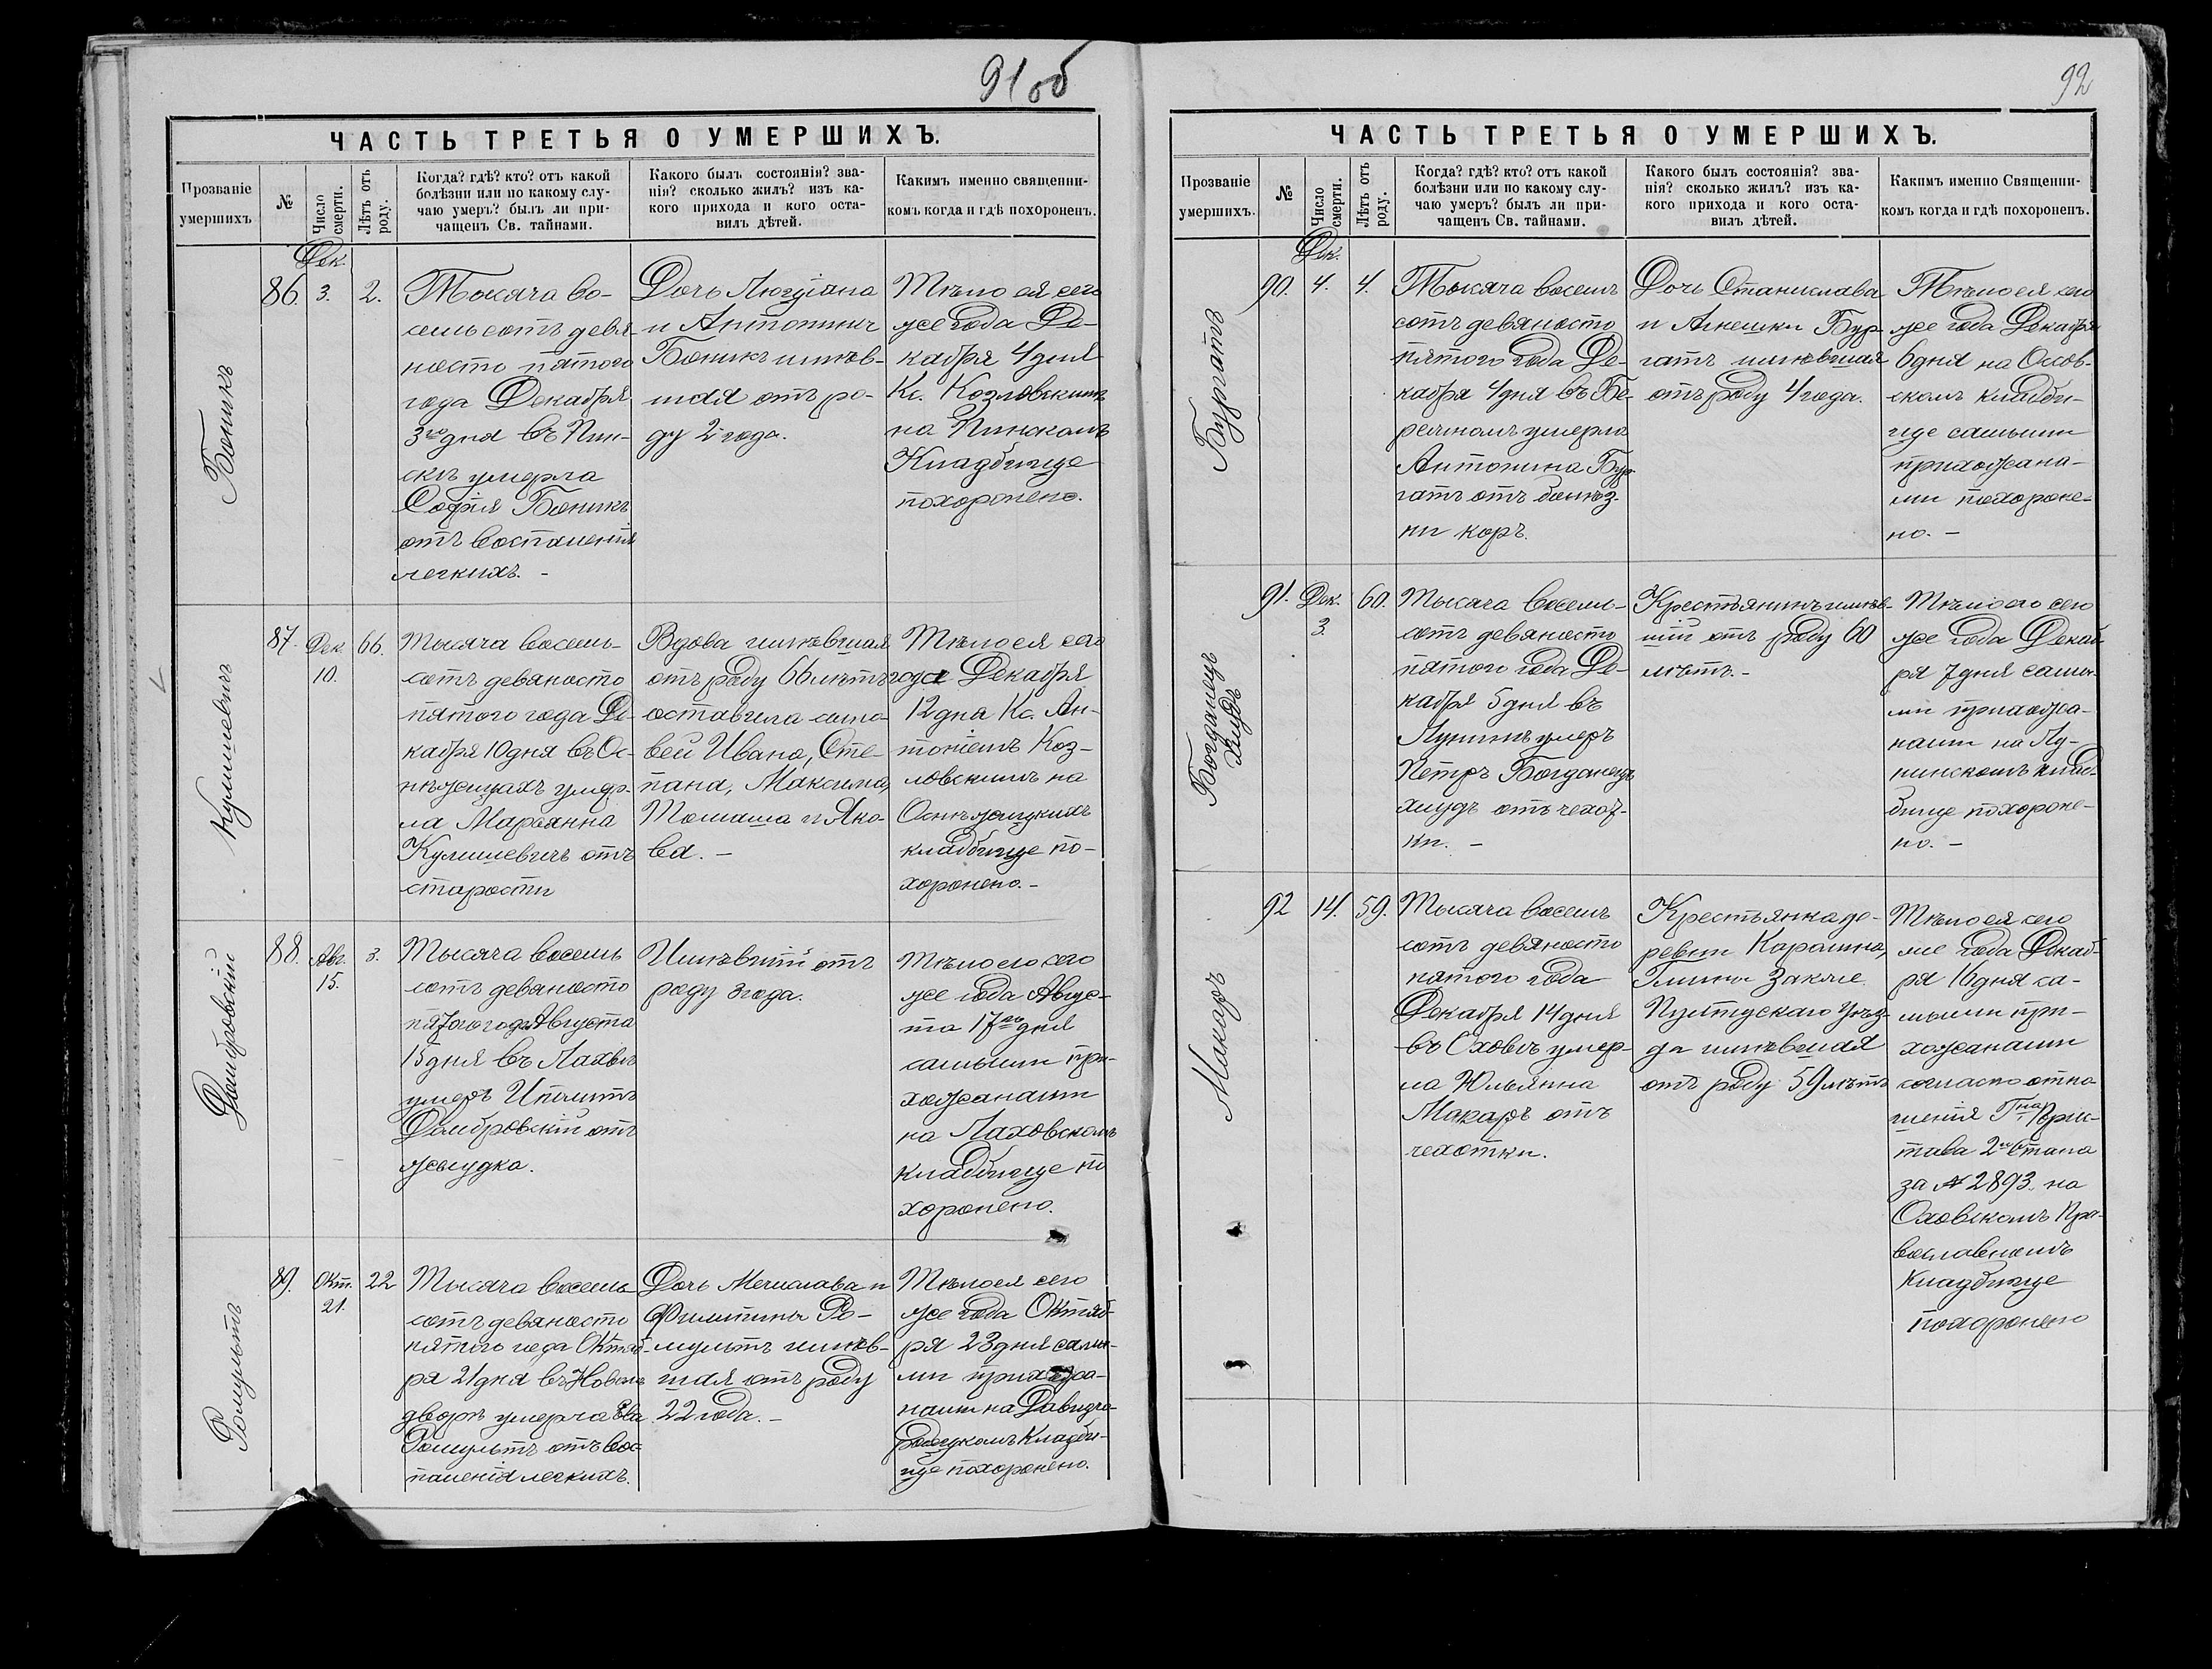 91 об
ЧАСТЬ ТРЕТЬЯ О УМЕРШИХЪ.
Прозваніе
умершихъ
№
Число
смерти.
Лѣтъ отъ
роду.
Когда? гдѣ? кто? отъ какой
болѣзни или по какому слу-
чаю умеръ? былъ ли при-
чащенъ Св. тайнами.
Какого былъ состоянія? зва-
нія? сколько жилъ? изъ ка-
кого прихода и кого оста-
вилъ дѣтей.
Какимъ именно священни-
комъ когда и гдѣ похороненъ.
Боникъ
86.
Дек.
3.
2.
Тысяча во-
семьсотъ девя-
носто пятого
года Декабря
3го дня въ Пин-
скѣ умерла
Софія Боникъ
отъ воспаленія
легкихъ. -
Дочь Люціана
и Антонины
Боникъ имѣв-
шая отъ ро-
ду 2 года.
Тѣло ея сего
же года Де-
кабря 4 дня
Кс. Козловскимъ
на Пинскомъ
Кладбище
похоронено.
Кулишевичъ
87.
Дек.
10.
66.
Тысяча восемь-
сотъ девяносто
пятого года Де-
кабря 10 дня въ Ос-
нѣжицахъ умер-
ла Марьянна
Кулишевичъ отъ
старости
Вдова имѣвшая
отъ роду 66 лѣтъ
оставила сыно-
вей Ивана, Сте-
пана, Максима,
Томаша и Яко-
ва. -
Тѣло ея сего
года Декабря
12 дна Кс. Ан-
тоніемъ Коз-
ловскимъ на
Оснѣжицкихъ
кладбище по-
хоронено. -
Домбровскій
88.
Авг.
15.
3.
Тысяча восемь
сотъ девяносто
пятого года Августа
15 дня въ Лахвѣ
умеръ Иполитъ
Домбровскій отъ
желудка.
Имѣвшій отъ
роду 3 года.
Тѣло его сего
же года Авгус-
та 17го дня
самыми при-
хожанами
на Лаховскомъ
кладбище по
хоронено.
Ромультъ
89.
Окт.
21.
22
Тысяча восемь
сотъ девяносто
пятого года Октяб-
ря 21 дня въ Новомъ
дворѣ умерла Ева
Ромультъ отъ вос-
паленія легкихъ.
Дочь Мечислава и
Филипины Ро-
мультъ имѣв-
шая отъ роду
22 года. -
Тѣло ея сего
же года Октяб-
ря 23 дня самы-
ми прихожа-
нами на Давидго-
родецкомъ Кладби-
ще похоронено.
92
ЧАСТЬ ТРЕТЬЯ О УМЕРШИХЪ.
Прозваніе
умершихъ.
№
Число
смерти.
Лѣтъ отъ
роду.
Когда? гдѣ? кто? отъ какой
болѣзни или по какому слу-
чаю умеръ? былъ ли при-
чащенъ Св. тайнами.
Какого былъ состоянія? зва-
нія? сколько жилъ? изъ ка-
кого прихода и кого оста-
вилъ дѣтей.
Какимъ именно Священни-
комъ когда и гдѣ похороненъ.
Бургатъ
90.
Дек.
4.
4.
Тысяча восемь
сотъ девяносто
пятого года Де-
кабря 4 дня въ Бе-
режномъ умерла
Антонина Бур-
гатъ отъ болѣз-
ни коръ.
Дочь Станислава
и Агнешки Бур-
гатъ имѣвшая
отъ роду 4 года.
Тѣло ея сего
же года Декабря
6 дня на Осов-
скомъ кладби-
ще самыми
прихожана-
ми похороне-
но. -
Богданецъ
хмудъ
91.
Дек.
3.
60.
Тысяча восемь-
сотъ девяносто
пятого года Де-
кабря 5 дня въ
Лунинѣ умеръ
Петръ Богданецъ
хмудъ отъ чехот-
ки. -
Крестьянинъ имѣв-
шій отъ роду 60
лѣтъ. -
Тѣло его сего
же года Декаб
ря 7 дня самы-
ми прихожа-
нами на Лу-
нинскомъ клад-
бище похороне-
но. -
Макаръ
92
14.
59.
Тысяча восемь
сотъ девяносто
пятого года
Декабря 14 дня
въ Оховѣ умер-
ла Юльянна
Макаръ отъ
чехотки.
Крестьянка де-
ревни Каролина,
Гмины Закле
Пултускаго Уѣз-
да имѣвшая
отъ роду 59 лѣтъ
Тѣло ея сего
же года Декаб-
ря 16 дня са-
мыми при-
хожанами
согласно отно
шенія Гна Прис-
тава 2го Стана
за № 2893. на
Оховскомъ Пра-
вославномъ
Кладбище
похоронено